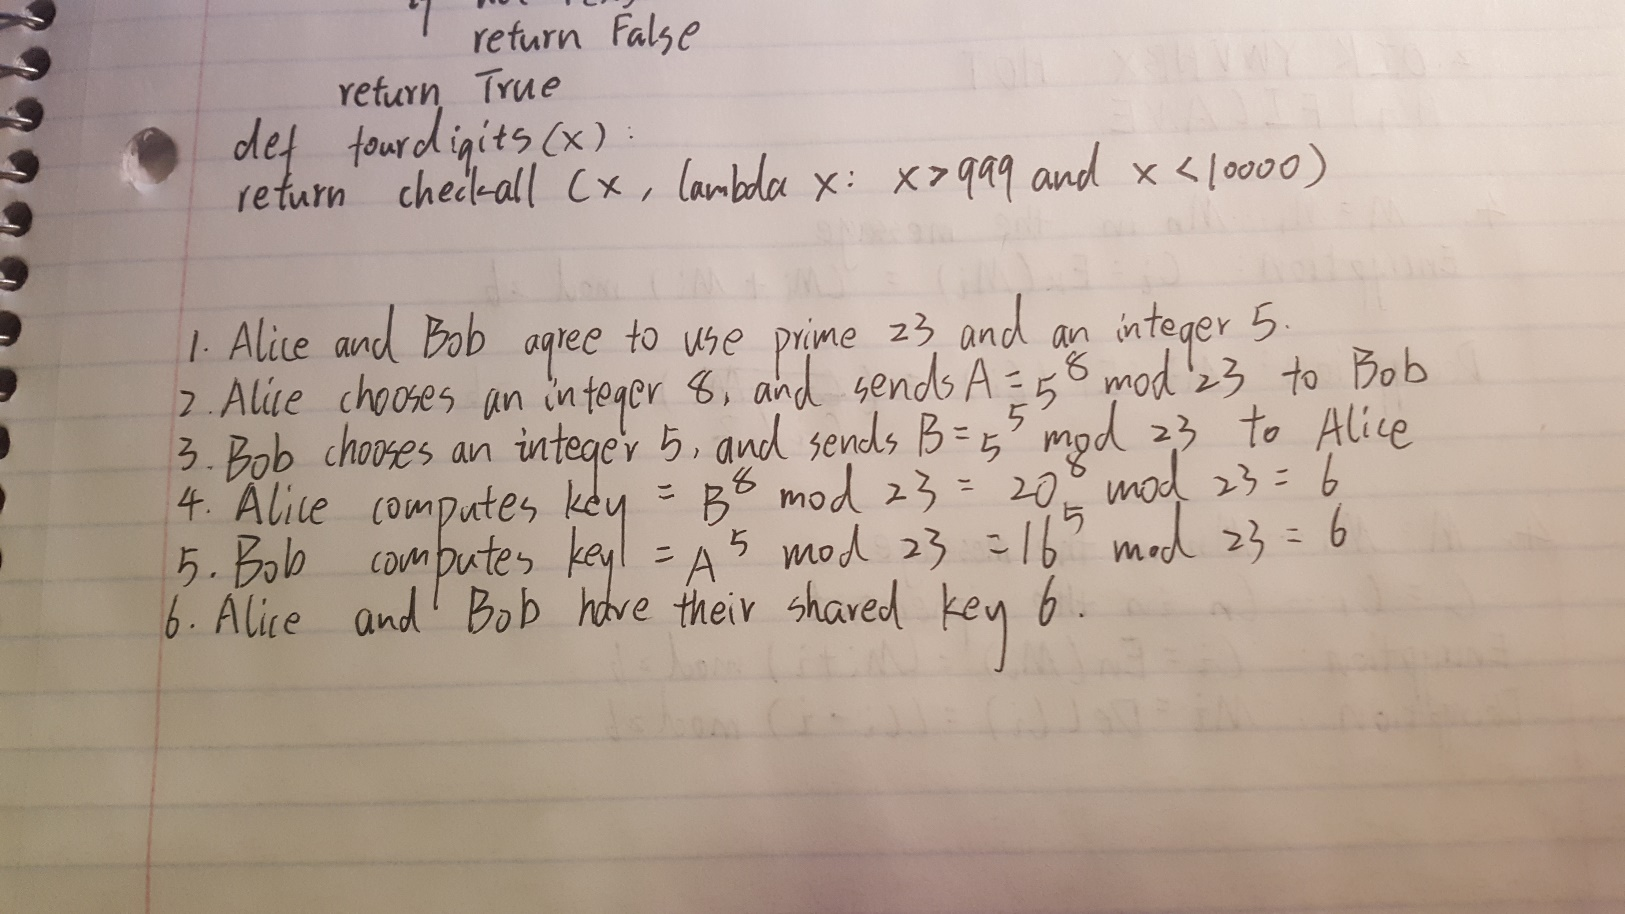 return False
return True
def fourdigits (x) :
return check-all (x, lambda x: x > 999 and x < 10000)
1. Alice and Bob agree to use prime 23 and an integer 5.
2. Alice chooses an integer 8, and sends A = 5⁸ mod 23 to Bob
3. Bob chooses an integer 5, and sends B = 5⁵ mod 23 to Alice
4. Alice computes key = B⁸ mod 23 = 20⁸ mod 23 = 6
5. Bob computes key = A⁵ mod 23 = 16⁵ mod 23 = 6
6. Alice and Bob have their shared key 6.